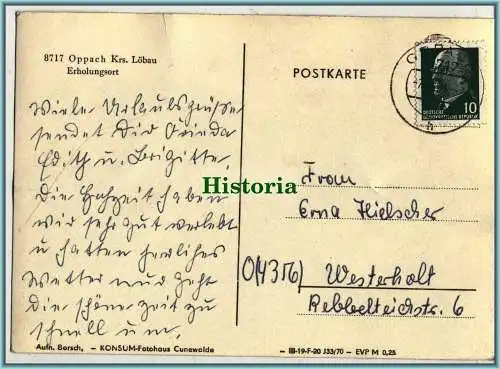 8717 Oppach Krs. Löbau
Erholungsort
Viele Urlaubsgrüße
sendet Dir Frieda
Edith u. Brigitte.
Die Hochzeit haben
wir sehr gut verlebt
u. hatten herrliches
Wetter nur geht
die schöne Zeit zu
schnell um.
Aufn. Borsch, – KONSUM-Fotohaus Cunewalde
POSTKARTE
DEUTSCHE
DEMOKRATISCHE REPUBLIK
10
Historia
Frau
Erna Hielscher
(4356)
Westerholt
Rebbelteichstr. 6
III-19-F-20 J33/70 – EVP M 0,25